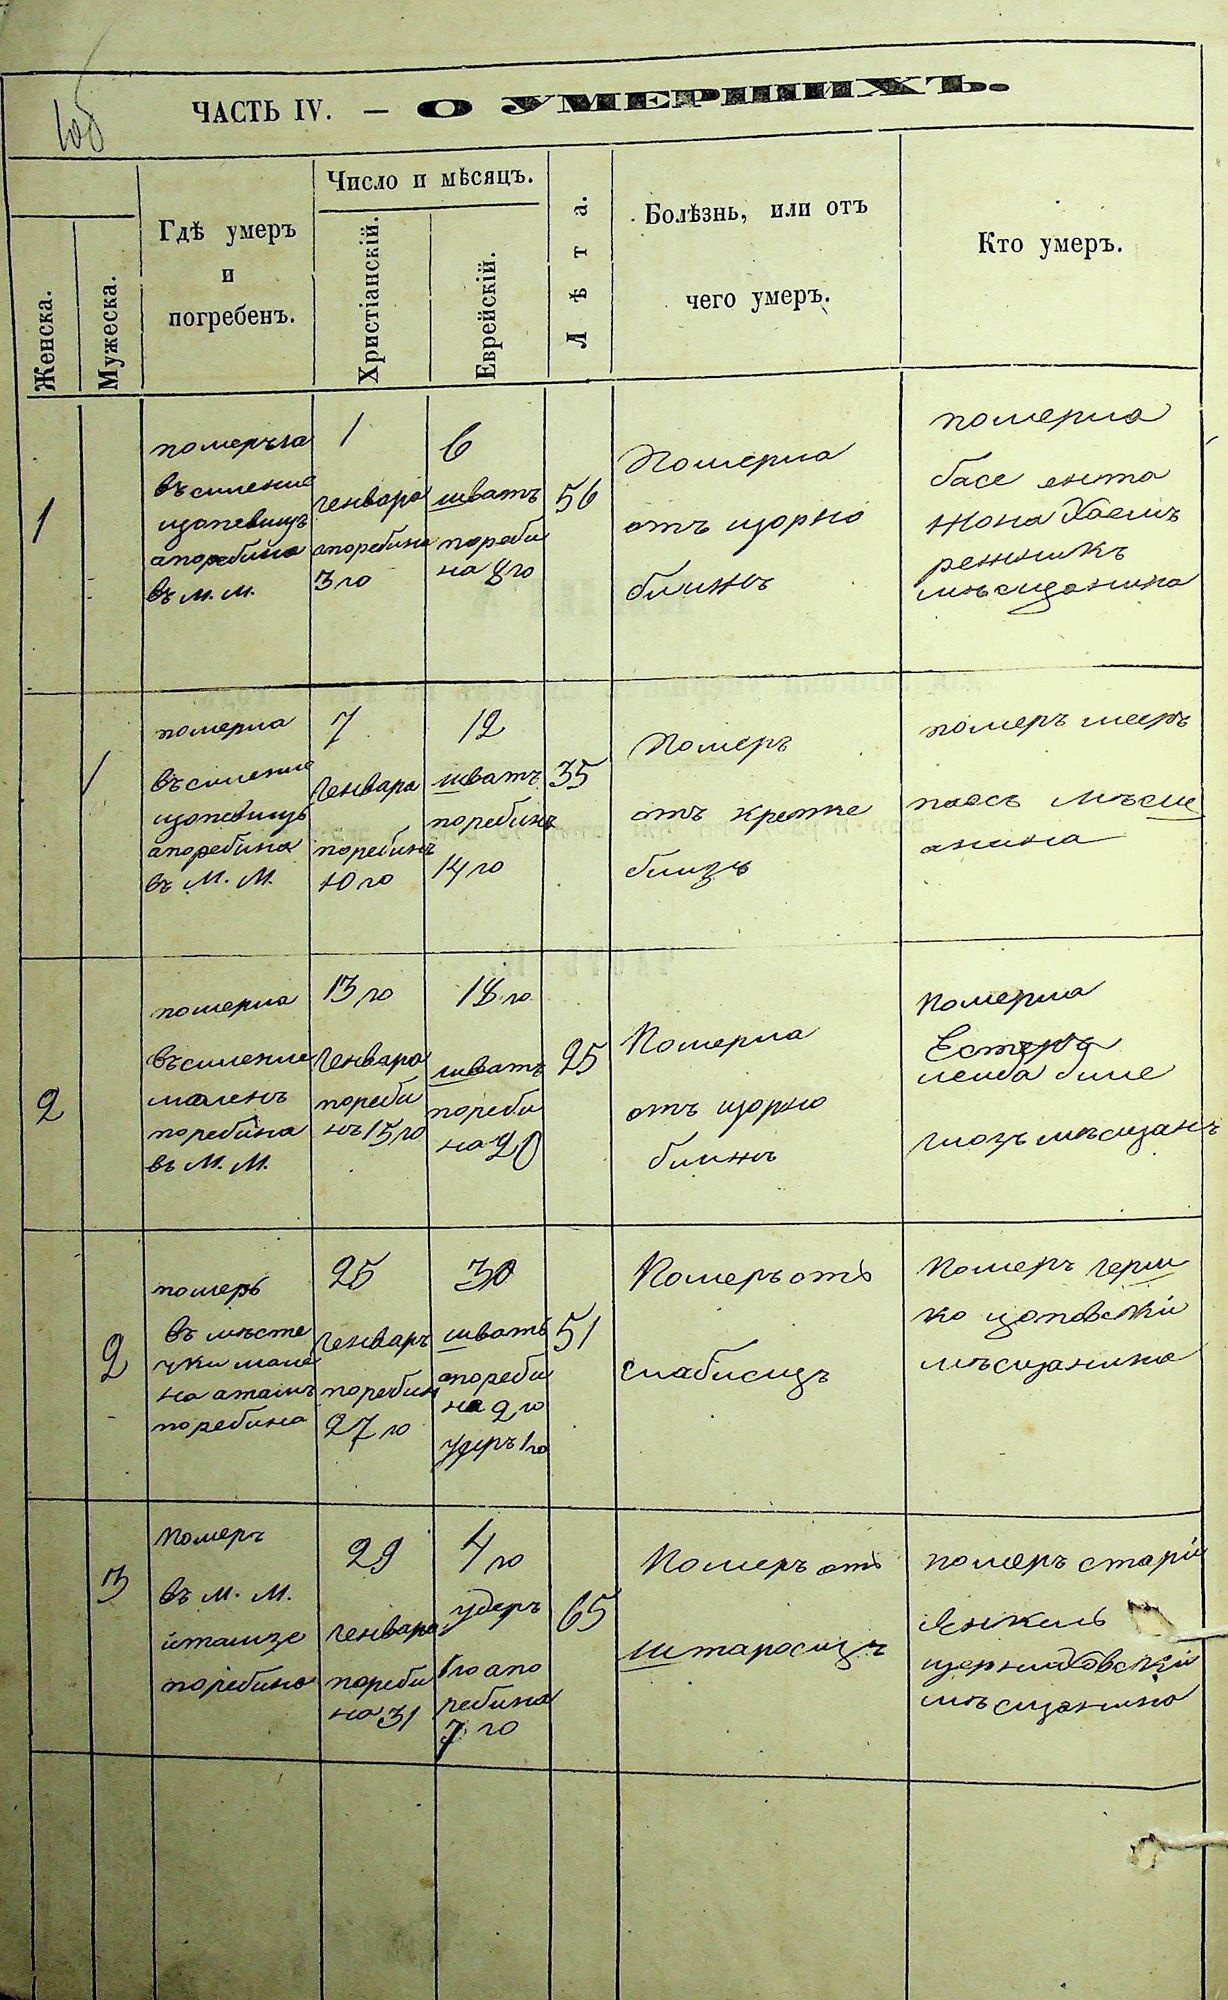 ЧАСТЬ IV. — О УМЕРШИХЪ.
Женска.
Мужеска.
Гдѣ умеръ
и
погребенъ.
Число и мѣсяцъ.
Христіанскій.
Еврейскій.
Лѣта.
Болѣзнь, или отъ
чего умеръ.
Кто умеръ.
1
померъла
въсиление
апоребина
въ м. м.
1
генвара
апоребина
3 го
6
шватъ
пореби
на 8 го
56
Померла
отъ щорно
ближъ
померла
басе ента
жона Хаемъ
резникъ
мѣсщанина
1
померла
въсиление
апоребина
въ М. М.
7
Генвара
поребинъ
10 го
12
шватъ
поребинъ
14 го
35
Померъ
отъ
близъ
померъ мееръ
паесъ мѣсщ
анина
2
померла
въсиление
маленъ
поребина
въ М. М.
13 го
Генвара
пореби
нъ 15 го
18 го
шватъ
пореби
на 20
25
Померла
отъ щорно
ближъ
Померла
Естеръ
лейба
мѣсщанъ
2
померъ
въ мѣсте
чки мале
на аташъ
поребина
25
Генваръ
поребин
27 го
30
шватъ
апореби
на 2 го
удеръ 1 го
51
Померъ отъ
слабисцъ
Померъ герш
ко цоповскій
мѣсщанина
3
Померъ
въ м. м.
итамзе
поребино
29
Генвара
пореби
на 31
4 го
удеръ
1 го апо
ребина
7 го
65
Померъ отъ
штаросцъ
померъ старій
Янкель
мѣсщанина